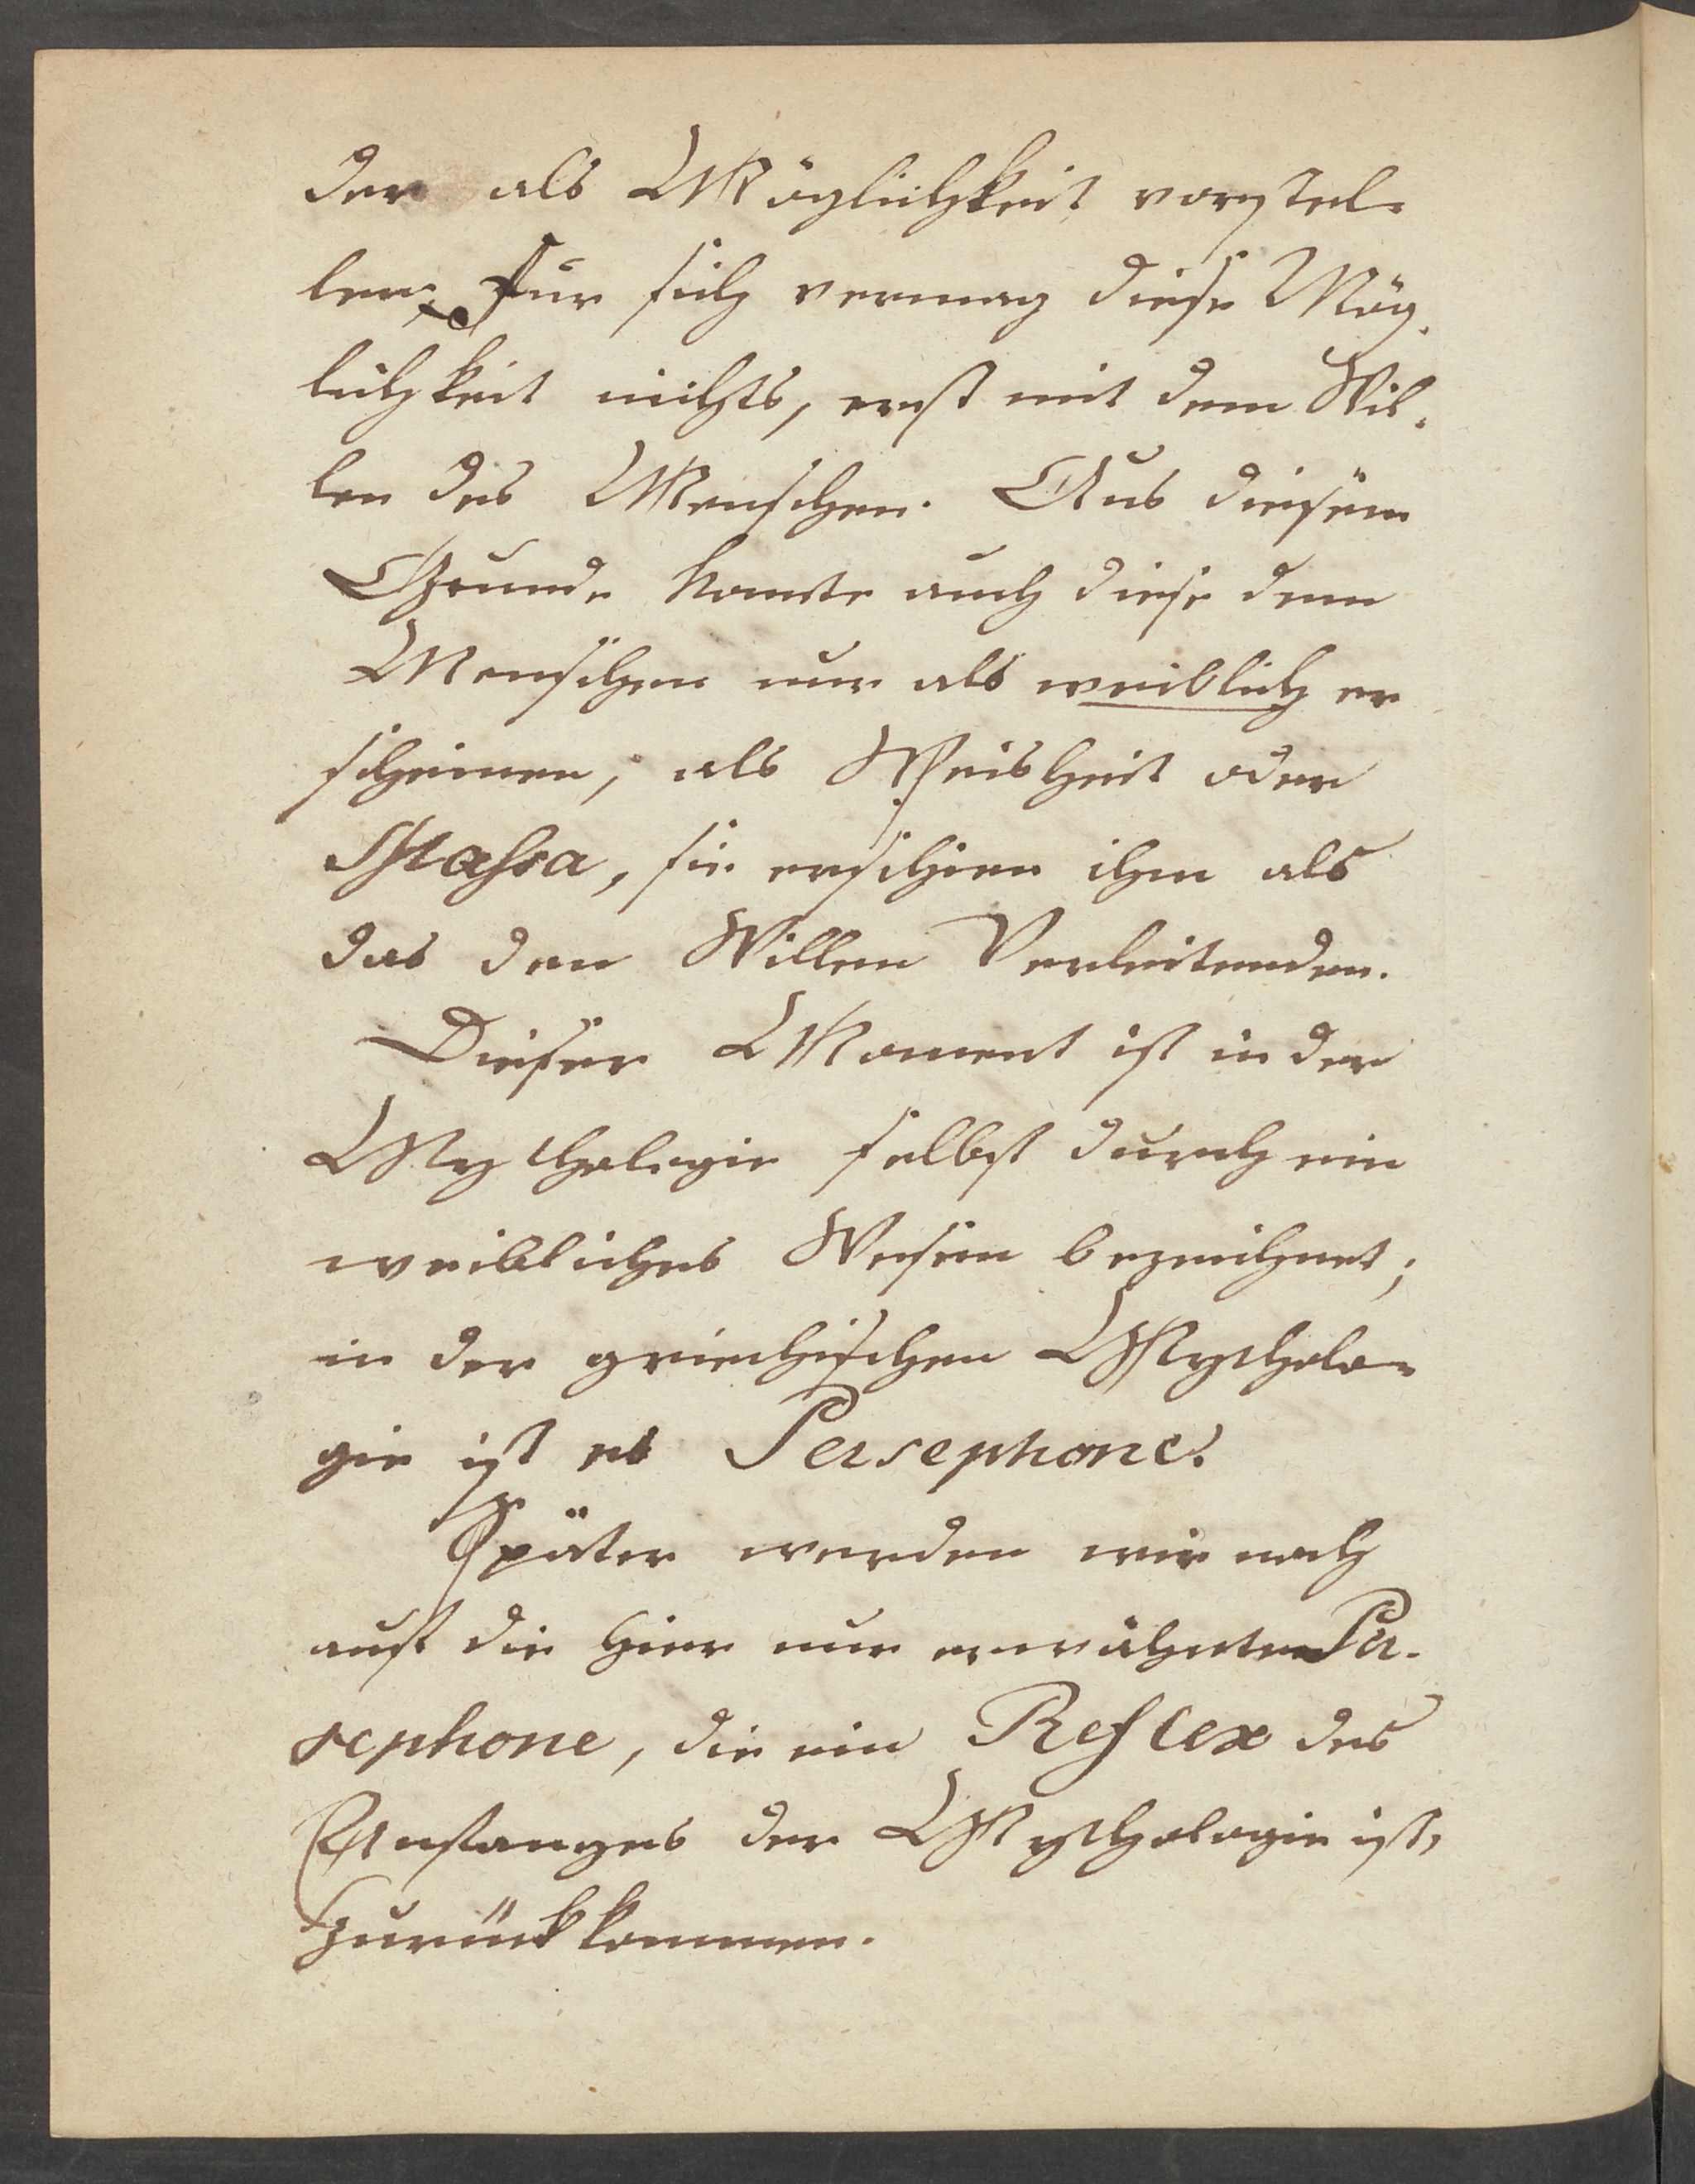 der als Möglichkeit vorstel-
len. Für sich vermag diese Mög-
lichkeit nichts, erst mit dem Wil-
len des Menschen. Aus diesem
Grunde konnte auch diese dem
Menschen nur als weiblich er
scheinen, als Weisheit oder
sie erschien ihm als
das den Willen Verleitenden.
Dieser Moment ist in der
Mythologie selbst durch ein
weibliches Wesen bezeichnet;
in der griechischen Mytholo-
gie ist es Persephone.
Später werden wir noch
auf die hier nur erwähnte Per-
sephone, die ein Reflex des
Anfanges der Mythologie ist,
zurückkommen.